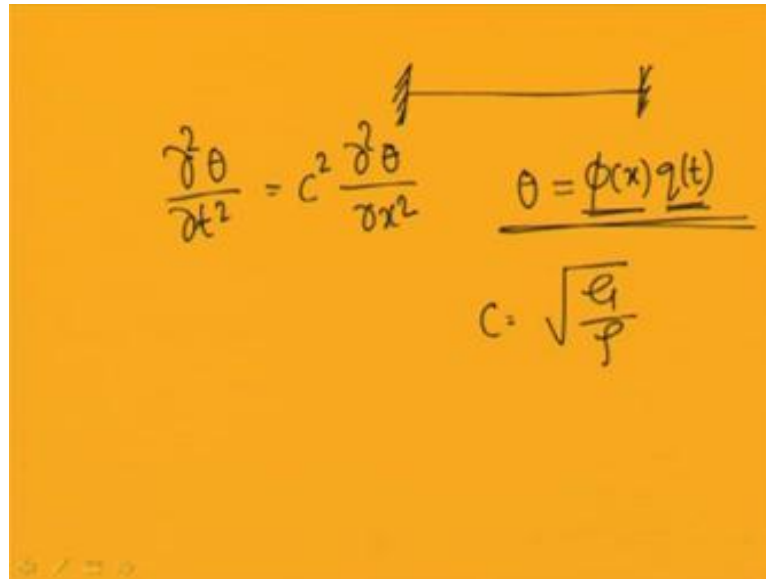 ∂²θ/∂t² = c² ∂²θ/∂x²
θ = φ(x) q(t)
c = √(G/ρ)